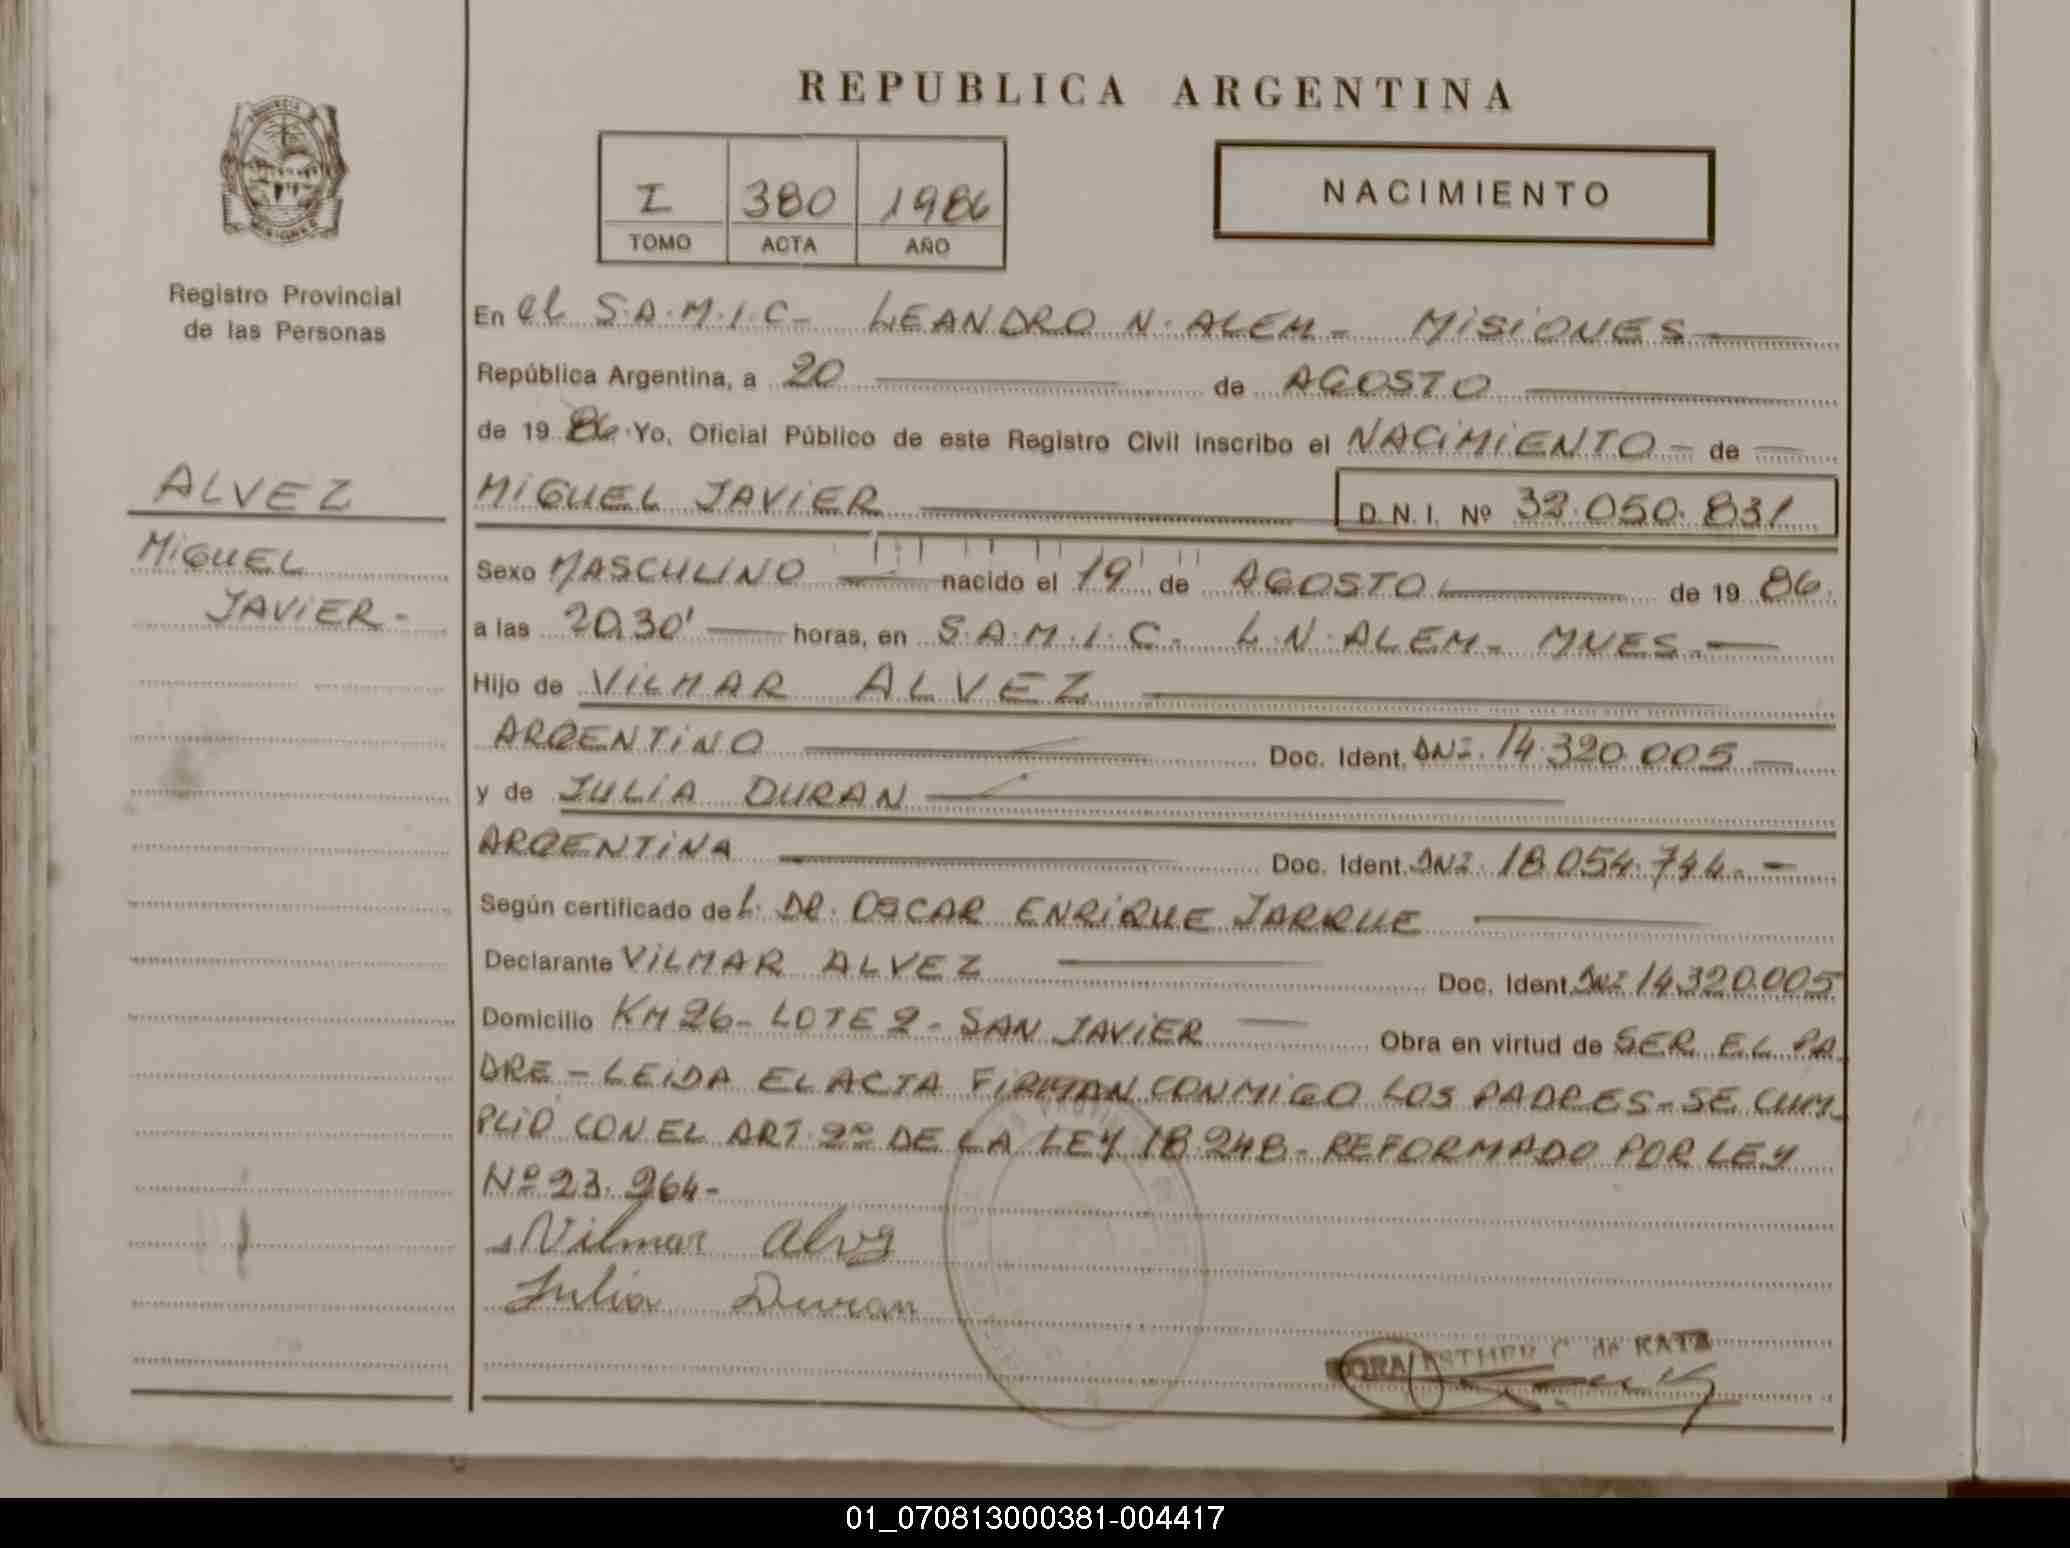 REPUBLICA ARGENTINA
I 380 1986
TOMO ACTA AÑO
NACIMIENTO
Registro Provincial
de las Personas
ALVEZ
MIGUEL
JAVIER-
En el S.A.M.I.C- LEANDRO N. ALEM- MISIONES-
República Argentina, a 20 de AGOSTO
de 1986 Yo, Oficial Público de este Registro Civil inscribo el NACIMIENTO- de
MIGUEL JAVIER D.N.I. Nº 32.050.831
Sexo MASCULINO nacido el 19 de AGOSTO de 1986.
a las 20,30' horas, en S.A.M.I.C- L.N. ALEM- MNES.-
Hijo de VILMAR ALVEZ
ARGENTINO Doc. Ident. DNI. 14.320.005
y de JULIA DURAN
ARGENTINA Doc. Ident. DNI. 18.054.744.-
Según certificado del. DR. OSCAR ENRIQUE JARQUE
Declarante VILMAR ALVEZ Doc. Ident. DNI 14320.005
Domicilio KM 26- LOTE 2- SAN JAVIER Obra en virtud de SER EL PA
DRE - LEIDA EL ACTA FIRMAN CONMIGO LOS PADRES- SE CUM-
PLIO CON EL ART. 2º DE LA LEY 18.248- REFORMADO POR LEY
Nº 23.264-
Vilmar Alvez
Julia Duran
ESTHER C. de KATZ
01_070813000381-004417